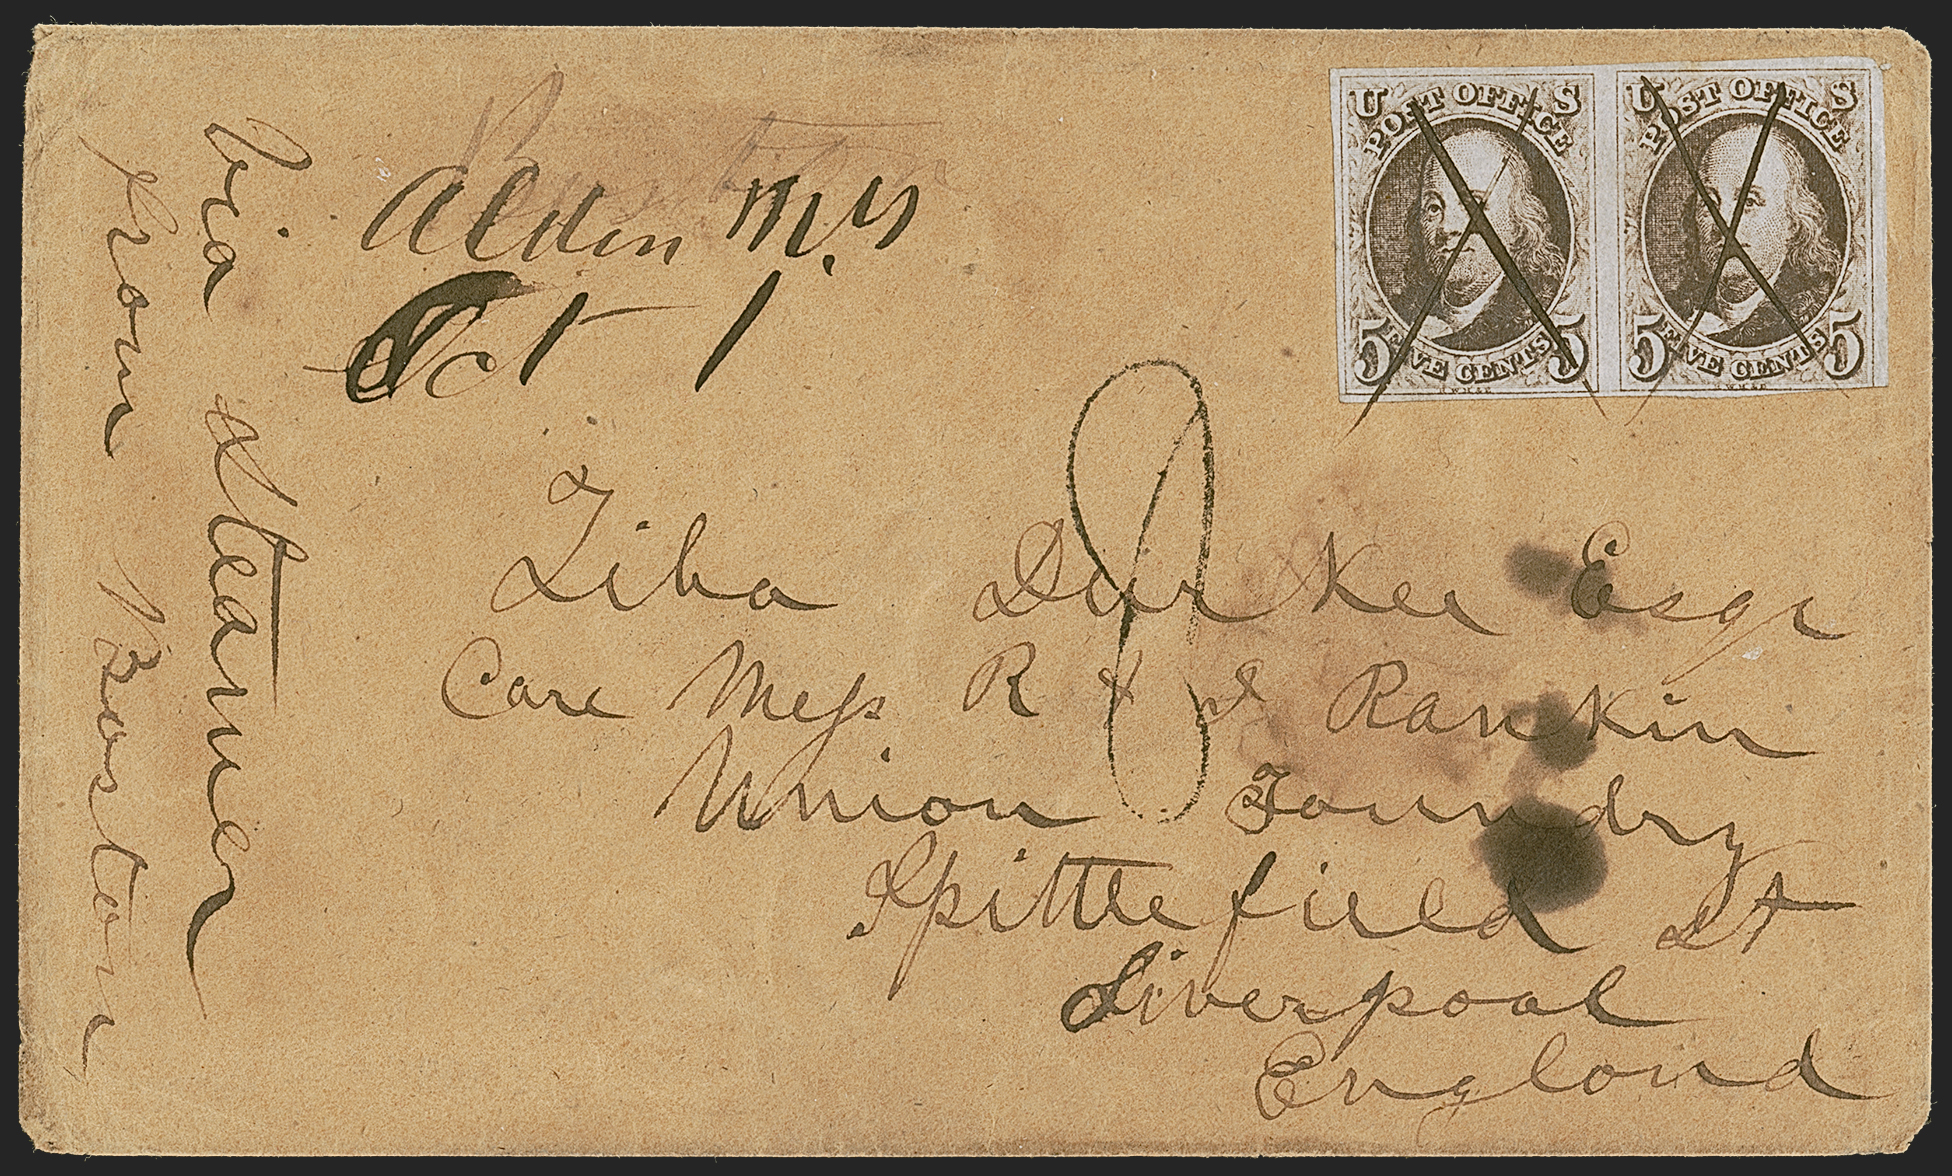 Boston
Alden N.Y
Oct 1
U S
POST OFFICE
5 FIVE CENTS 5
U S
POST OFFICE
5 FIVE CENTS 5
Via Steamer
from Boston
Ziba Durkee Esqr
Care Mess R & J Rankin
Union Foundry
Spittlefield St
Liverpool
England